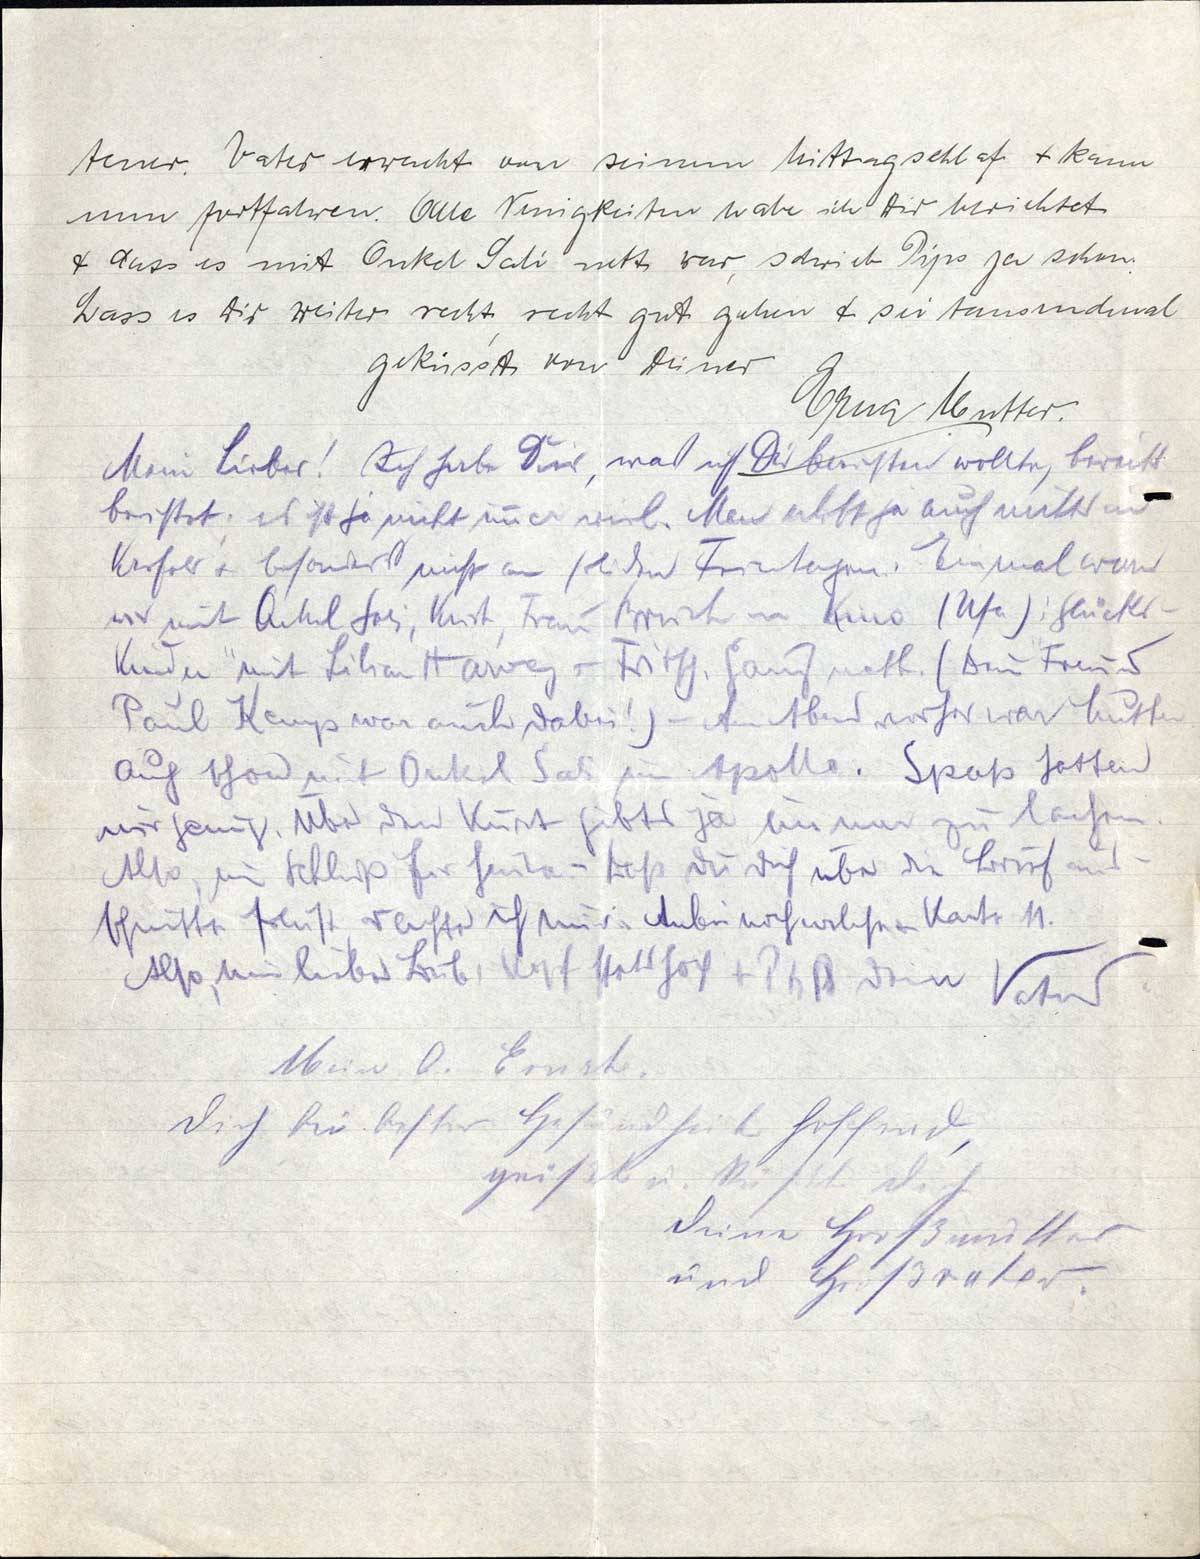 teuer. Vater erwacht von seinem Mittagschlaf & kann
nun fortfahren. Alle Neuigkeiten habe ich Dir berichtet
& dass es mit Onkel Sali nett war, schrieb Pips ja schon.
Lass es Dir weiter recht, recht gut gehen & sei tausendmal
geküsst von Deiner
Mutter.
Mein Lieber! Ich habe Dir, was ich Dir berichten wollte, bereits
berichtet, es ist ja nicht viel. Man ja auch nicht
besonders nicht an den Feiertagen. Einmal waren
wir mit Onkel Sali, Kurt, Frau im Kino (Ufa): Glücks-
kinder" mit Lilian Harvey + Fritsch. Ganz nett. (Dein Freund
Paul Kemp war auch dabei!) - Am Abend vorher war Mutter
auch schon mit Onkel Sali im Apollo. Spaß hatten
wir genug. Über den Kurt gibts ja immer zu lachen.
Also, nun Schluß für heute. - Daß Du Dich über die Brief aus-
schnitte freust, dachte ich mir. Anbei noch welche + Karte 11.
Also, mein lieber Bub, Kopf hoch + Dein Vater
Mein l. Ernst.
Dich bei bester Gesundheit hoffend,
grüßt u. küßt Dich
Deine Großmutter
und Großvater.